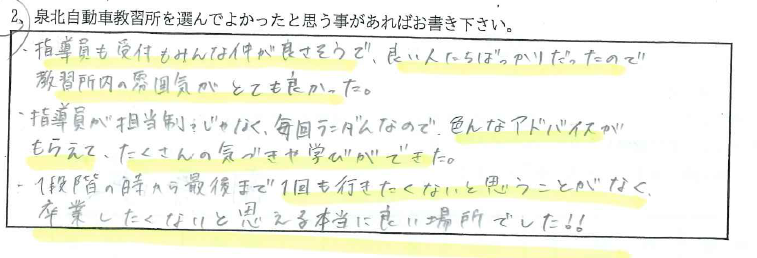 2、泉北自動車教習所を選んでよかったと思う事があればお書き下さい。
・指導員も受付もみんな仲が良さそうで、良い人たちばっかりだったので
教習所内の雰囲気がとても良かった。
・指導員が担当制じゃなく、毎回ランダムなので、色んなアドバイスが
もらえて、たくさんの気づきや学びができた。
・1段階の時から最後まで1回も行きたくないと思うことがなく、
卒業したくないと思える本当に良い場所でした!!